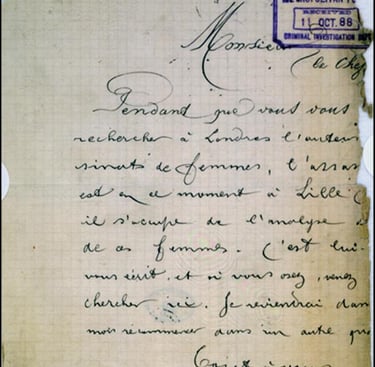 METROPOLITAN PO
RECEIVED
11 OCT. 88
CRIMINAL INVESTIGATION DEP
Monsieur
le Chef
Pendant que vous vous
rechercher à Londres l'auteur
sinats de femmes, l'assas
est en ce moment à Lille
il s'occupe de l'analyse
de ces femmes. C'est lui-
vous écrit, et si vous osez, venez
chercher ici. Je reviendrai dans
mois recommencer dans un autre qua